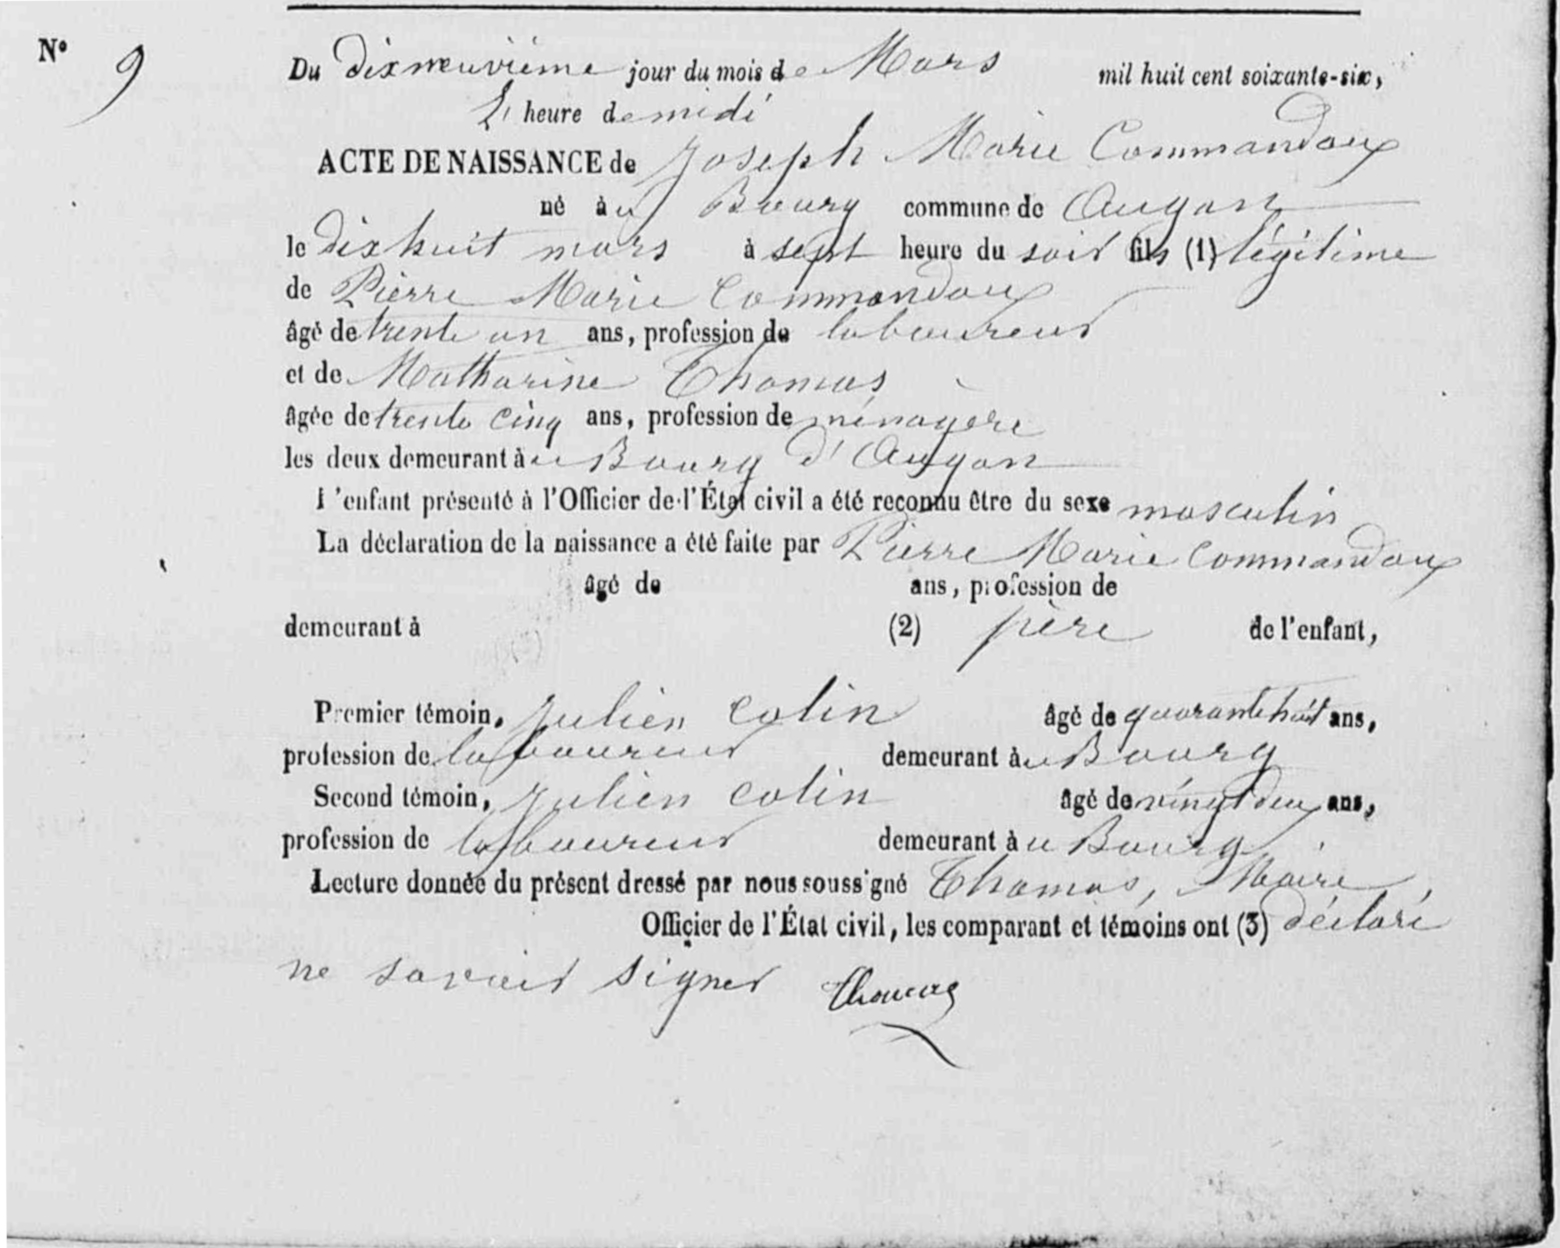 N° 9
Du dix neuvième jour du mois de Mars mil huit cent soixante-six,
L' heure de midi
ACTE DE NAISSANCE de Joseph Marie Commandoux
né à u Bourg commune de Augan
le dix huit mars à sept heure du soir fils (1) légitime
de Pierre Marie Commandoux
âgé de trente un ans, profession de laboureur
et de Matharine Thomas
âgée de trente cinq ans, profession de ménagère
les deux demeurant à u Bourg d'Augan
l'enfant présenté à l'Officier de l'État civil a été reconnu être du sexe masculin
La déclaration de la naissance a été faite par Pierre Marie Commandoux
âgé de ans, profession de
demeurant à (2) père de l'enfant,
Premier témoin, Julien Colin âgé de quarante huit ans,
profession de laboureur demeurant à u Bourg
Second témoin, Julien Colin âgé de vingt deux ans,
profession de laboureur demeurant à u Bourg
Lecture donnée du présent dressé par nous soussigné Thomas, Maire,
Officier de l'État civil, les comparant et témoins ont (3) déclaré
ne savoir signer Thomas